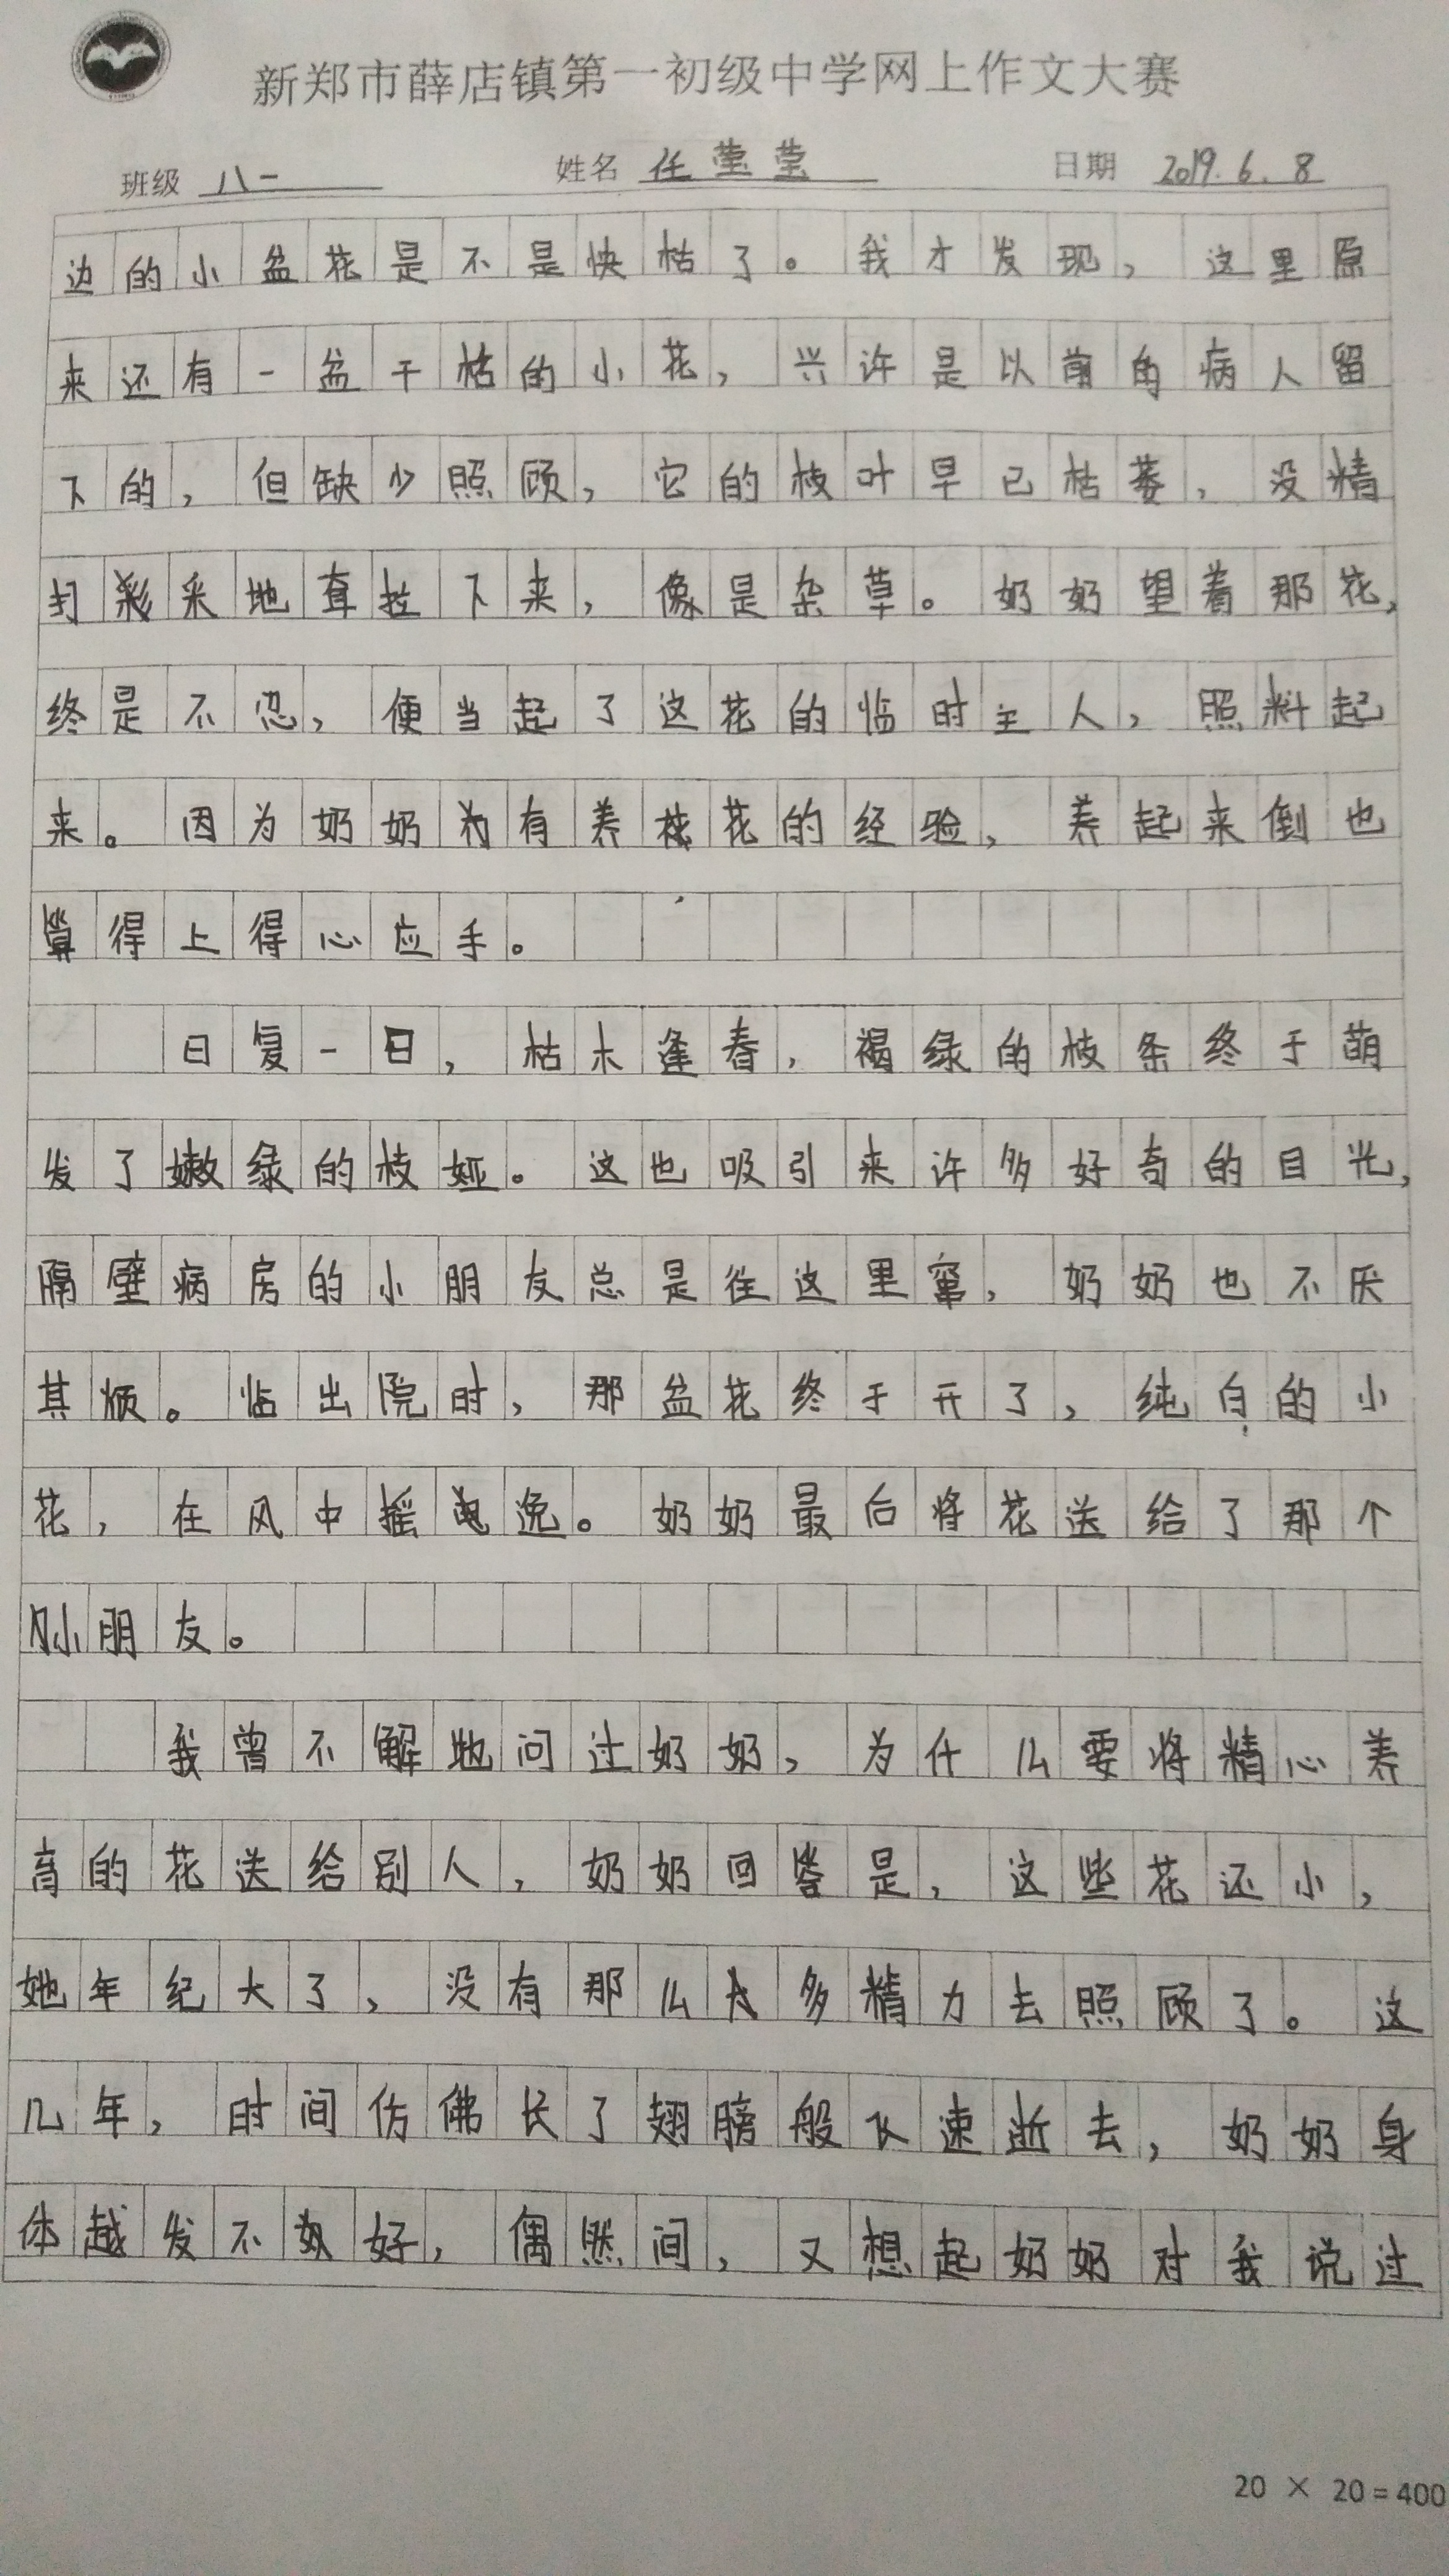 新郑市薛店镇第一初级中学网上作文大赛
班级 八一 姓名 任莹莹 日期 2019.6.8
边的小盆花是不是快枯了。我才发现，这里原
来还有一盆干枯的小花，兴许是以前的病人留
下的，但缺少照顾，它的枝叶早已枯萎，没精
打彩采地耷拉下来，像是杂草。奶奶望着那花，
终是不忍，便当起了这花的临时主人，照料起
来。因为奶奶为有养枝花的经验，养起来倒也
算得上得心应手。
日复一日，枯木逢春，褐绿的枝条终于萌
发了嫩绿的枝娅。这也吸引来许多好奇的目光，
隔壁病房的小朋友总是往这里窜，奶奶也不厌
其烦。临出院时，那盆花终于开了，纯白的小
花，在风中摇曳逸。奶奶最后将花送给了那个
小朋友。
我曾不解地问过奶奶，为什么要将精心养
育的花送给别人，奶奶回答是，这些花还小，
她年纪大了、没有那么大多精力去照顾了。这
几年，时间仿佛长了翅膀般飞速逝去，奶奶身
体越发不如好，偶然间，又想起奶奶对我说过
20 × 20=400